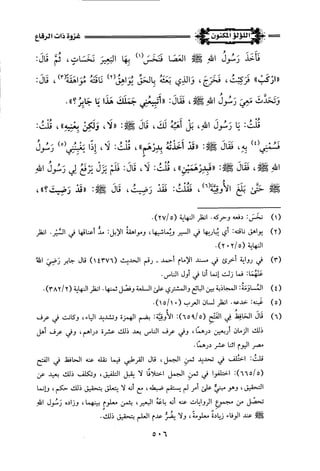 اللؤلؤ المكنون
غزوة ذات الرقاع
فَأَخَذَ رَسُولُ اللهِ ﷺ العَصَا فَنَخَسَ(١) بِهَا البَعِيرَ نَخَسَاتٍ، ثُمَّ قَالَ:
«ارْكَبْ» فَرَكِبْتُ، فَخَرَجَ، وَالذِي بَعَثَهُ بِالحَقِّ يُوَاهِقُ(٢) نَاقَتَهُ مُوَاهَقَةً(٣)، قَالَ:
وَتَحَدَّثَ مَعِيَ رَسُولُ اللهِ ﷺ، فَقَالَ: «أَتَبِيعُنِي جَمَلَكَ هَذَا يَا جَابِرُ؟».
قُلْتُ: يَا رَسُولَ اللهِ، بَلْ أَهَبُهُ لَكَ، قَالَ ﷺ: «لَا، وَلَكِنْ بِعْنِيهِ»، قُلْتُ:
فَسُمْنِي(٤) بِهِ، فَقَالَ ﷺ: «قَدْ أَخَذْتُهُ بِدِرْهَمٍ»، قُلْتُ: لَا، إِذًا يَغْبِنُنِي(٥) رَسُولُ
اللهِ ﷺ، فَقَالَ ﷺ: «فَبِدِرْهَمَيْنِ»، قُلْتُ: لَا، قَالَ: فَلَمْ يَزَلْ يَرْفَعُ لِي رَسُولُ اللهِ
ﷺ حَتَّى بَلَغَ الأُوقِيَّةَ(٦)، فَقُلْتُ: فَقَدْ رَضِيتُ، قَالَ ﷺ: «قَدْ رَضِيتَ؟»،
(١) نخَسَ: دفعه وحركه. انظر النهاية (٢٧/٥).
(٢) يواهق ناقته: أي يُباريها في السير ويُماشيها، ومواهقة الإبل: مدُّ أعناقها في السَّيْر. انظر
النهاية (٢٠٢/٥).
(٣) في رواية أخرى في مسند الإمام أحمد - رقم الحديث (١٤٣٧٦) قال جابر رَضِيَ اللهُ
عَنْهُمَا: فما زلت إنما أنا في أول الناس.
(٤) المُسَاوَمَةُ: المجاذبة بين البائع والمشتري على السلعة وفصل ثمنها. انظر النهاية (٣٨٢/٢).
(٥) غَبنَه: خدعه. انظر لسان العرب (١٥/١٠).
(٦) قَالَ الحَافِظُ فِي الفَتْحِ (٦٥٩/٥): الأُوقِيَّةُ: بضم الهمزة وتشديد الياء، وكانت في عرف
ذلك الزمان أربعين درهمًا، وفي عرف الناس بعد ذلك عشرة دراهم، وفي عرف أهل
مصر اليوم اثنا عشر درهمًا.
قلتُ: اختُلف في تحديد ثمن الجمل، قال القرطبي فيما نقله عنه الحافظ في الفتح
(٦٦٥/٥): اختلفوا في ثمن الجمل اختلافًا لا يقبل التلفيق، وتكلف ذلك بعيد عن
التحقيق، وهو مبنيٌّ على أمر لم يستقم ضبطه، مع أنه لا يتعلق بتحقيق ذلك حكم، وإنما
تحصل من مجموع الروايات عنه أنه باعَهُ البعير، بثمن معلوم بينهما، وزاده رَسُول اللهِ
ﷺ عند الوفاء زيادةً معلومة، ولا يضُرُّ عدم العلم بتحقيق ذلك.
٥٠٦